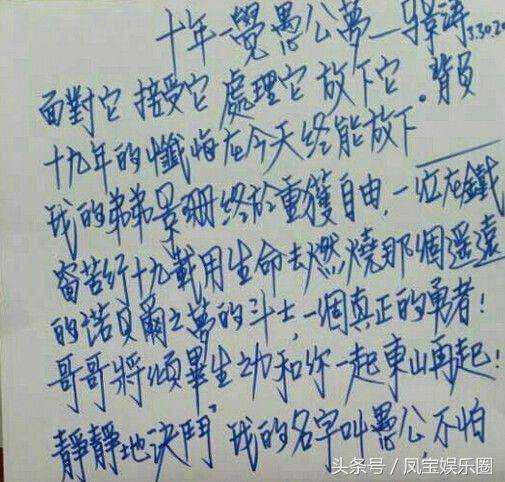 十年一覺愚公夢—景濤 3.30.20
面對它 接受它 處理它 放下它。背負
十九年的懺悔在今天终能放下
我的弟弟景珊终於重獲自由,一位在鐵
窗苦行十九載用生命去燃燒那個遥遠
的諾貝爾之夢的斗士,一個真正的勇者!
哥哥將傾畢生之力和你一起東山再起!
靜靜地決鬥" 我的名字叫愚公,不怕
头条号 / 凤宝娱乐圈